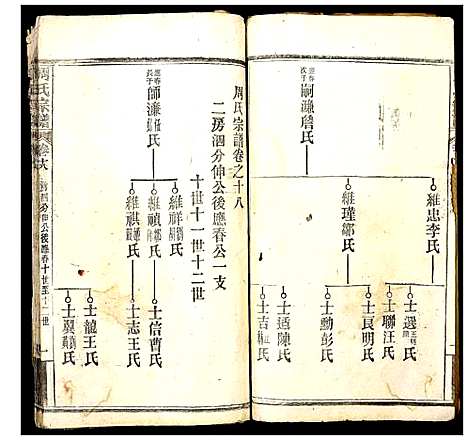 周氏宗譜卷之十八
二房泗分伸公後應春公一支
十世十一世十二世
應春長子
師濂
氏
維祥
氏
維禎
氏
維祺
氏
士信曹氏
士志王氏
士龍王氏
士翼
氏
周氏宗譜
卷十八
分伸公後應春十世至十二世
應春次子
嗣濂詹氏
維忠李氏
維瑾鄒氏
士選
氏
士聯汪氏
士良明氏
士勳彭氏
士适陳氏
士吉
氏